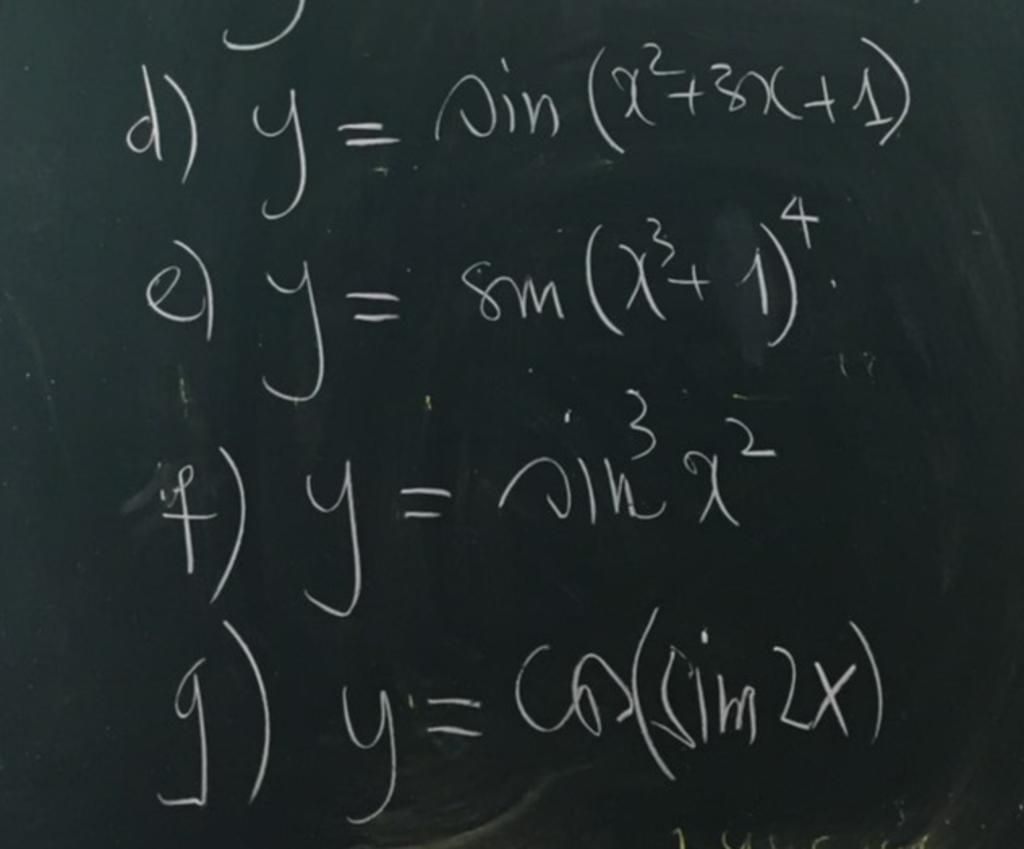 d) y = sin (x²+3x+1)
e) y = sin (x³+ 1)⁴.
f) y = sin³ x²
g) y = cos(sin 2x)